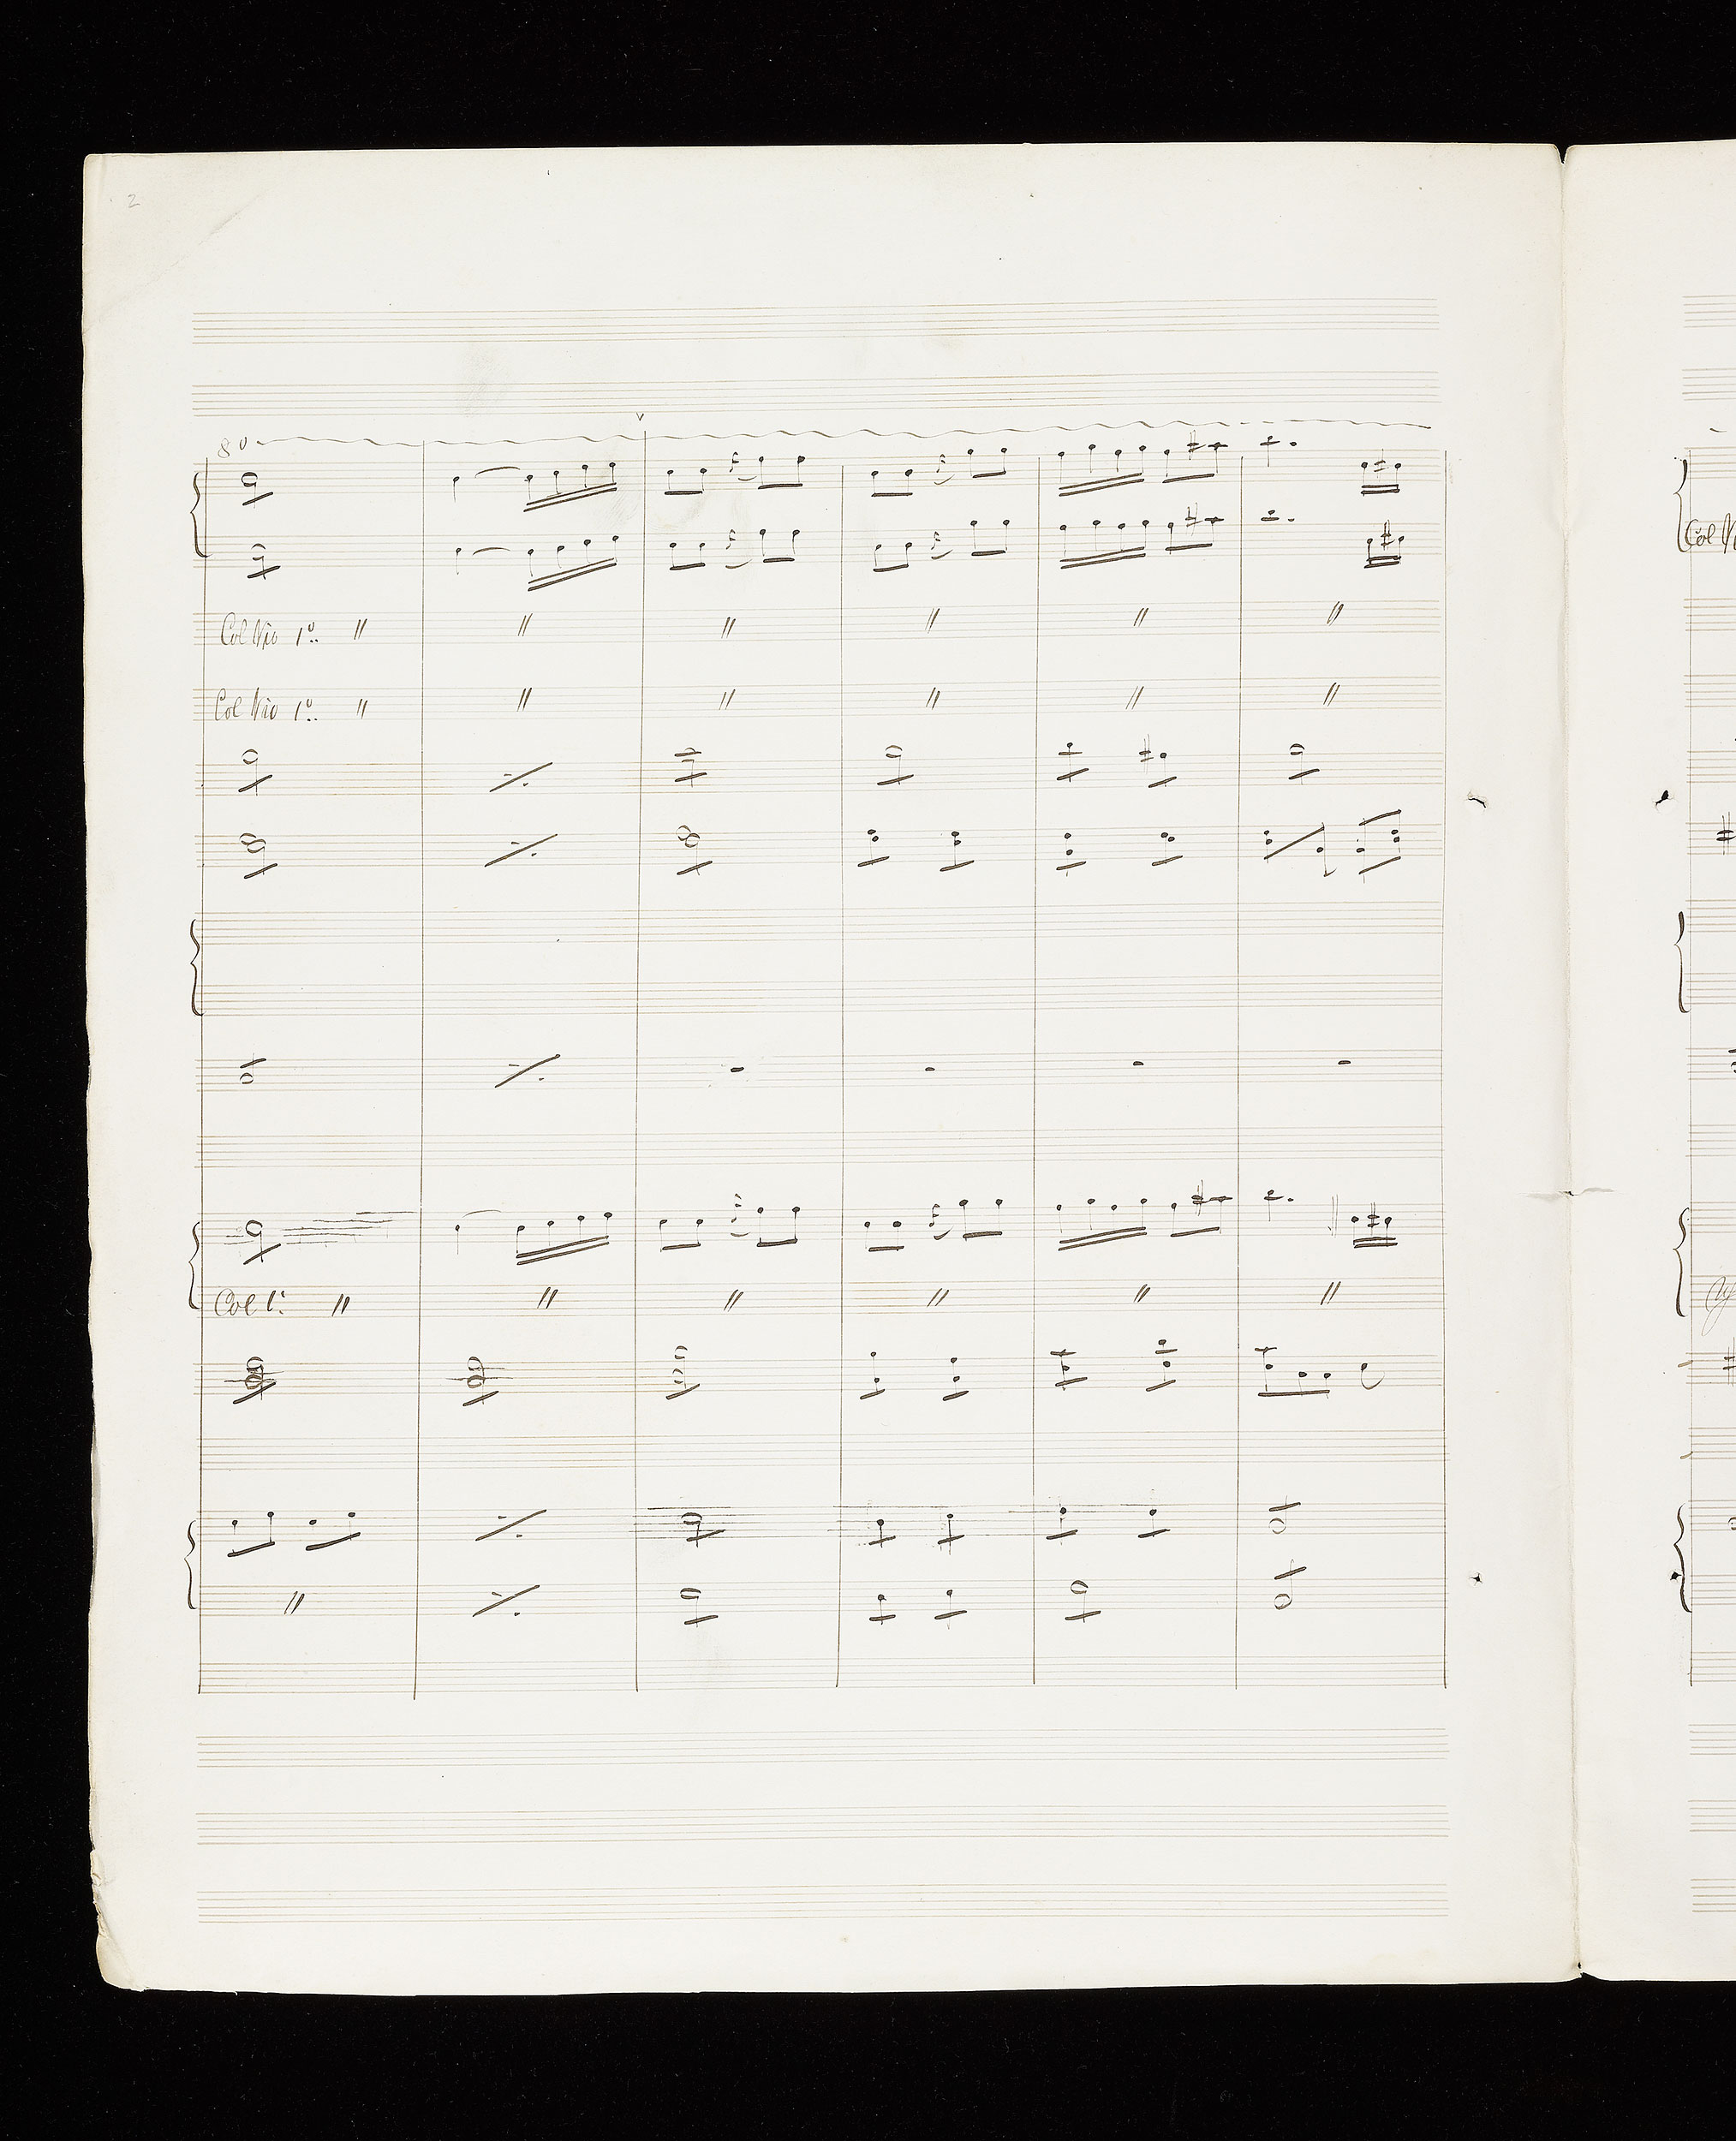 2
8º
Col Vio 1º.. //
Col Vio 1º.. //
Col 1º. //
Col